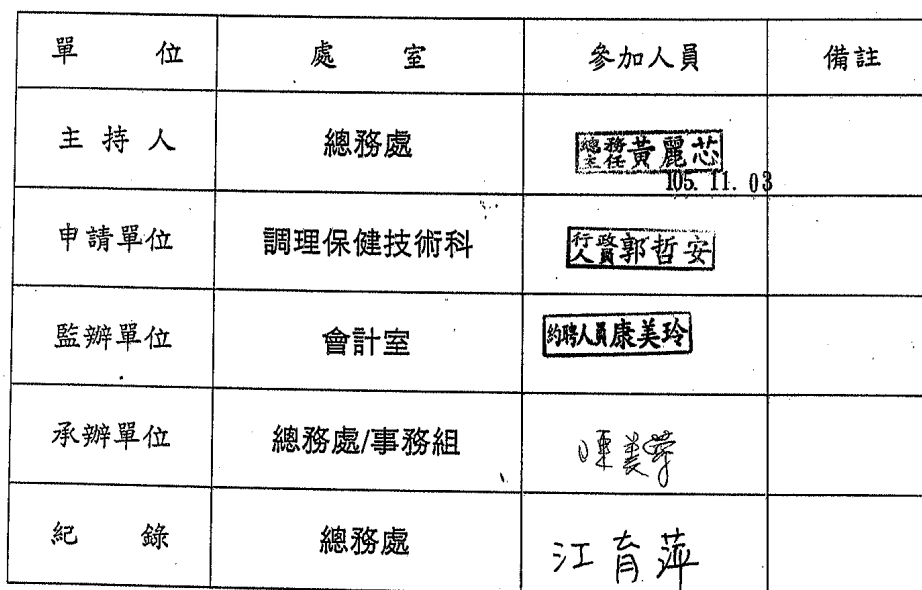 單位 處室 參加人員 備註
主持人 總務處 總務主任 黃麗芯
105. 11. 03
申請單位 調理保健技術科 行政人員 郭哲安
監辦單位 會計室 約聘人員康美玲
承辦單位 總務處/事務組 陳美
紀錄 總務處 江育萍